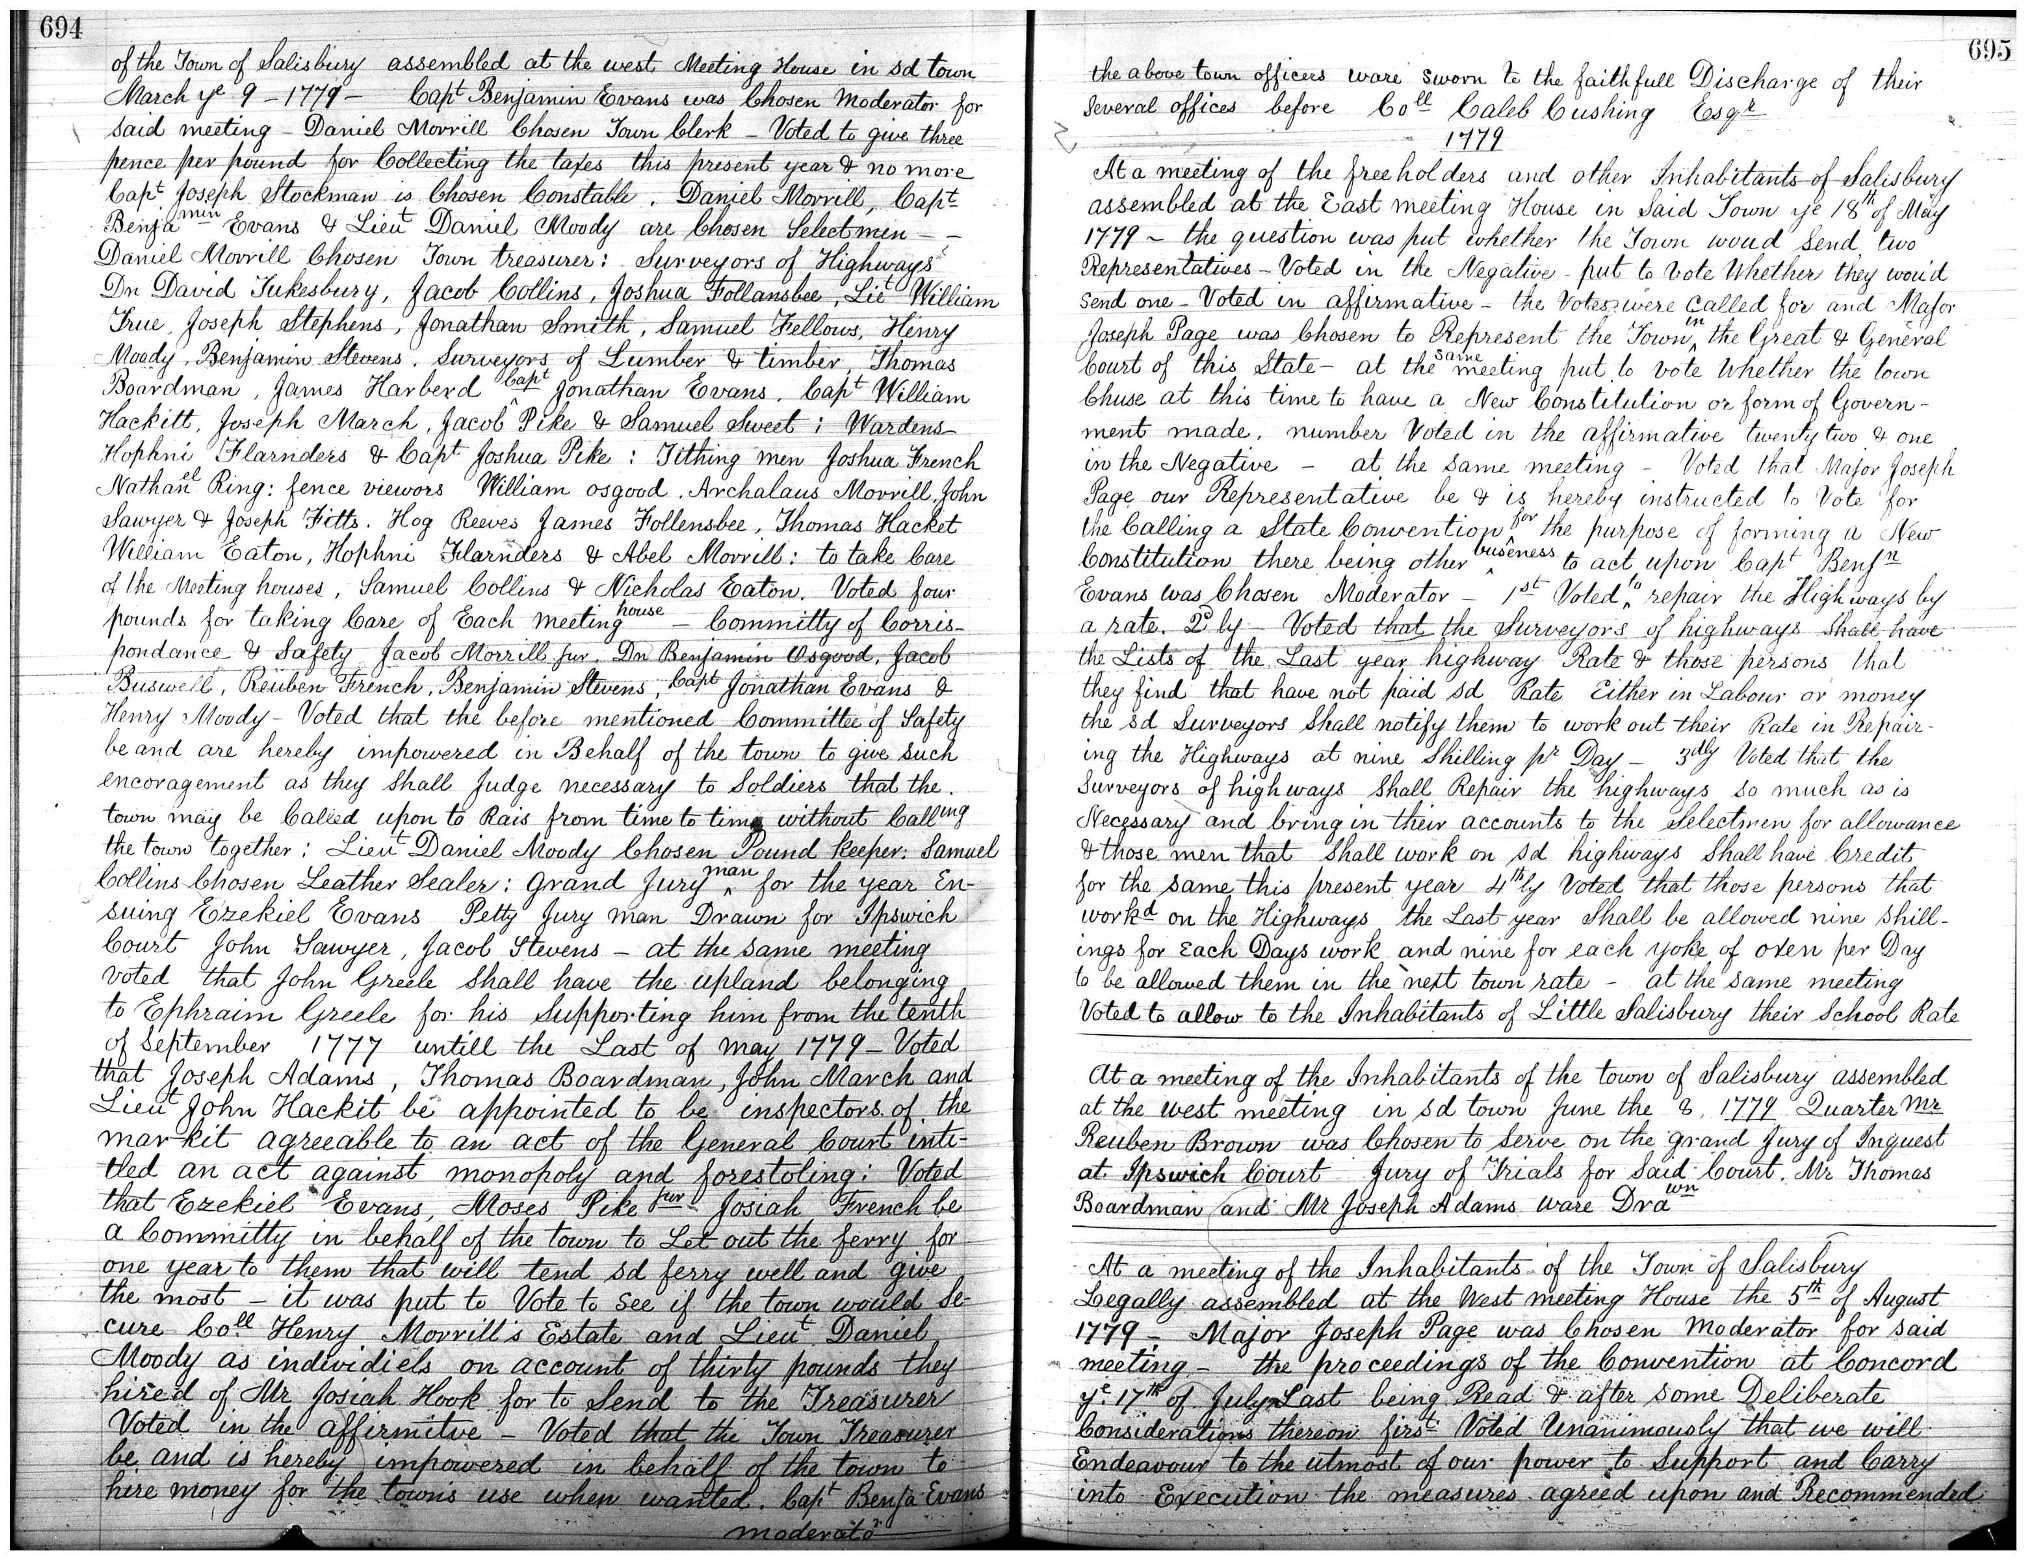 694
of the Town of Salisbury assembled at the west Meeting House in sd town
March ye 9 - 1779 - Capt Benjamin Evans was Chosen Moderator for
said meeting - Daniel Morrill Chosen Town Clerk - Voted to give three
pence per pound for Collecting the taxes this present year & no more
Capt Joseph Stockman is Chosen Constable. Daniel Morrill, Capt
Benjamin Evans & Lieut Daniel Moody are Chosen Selectmen - -
Daniel Morrill Chosen Town treasurer: Surveyors of Highways
Dn David Tukesbury, Jacob Collins, Joshua Follansbee, Liet William
True, Joseph Stephens, Jonathan Smith, Samuel Fellows, Henry
Moody, Benjamin Stevens. Surveyors of Lumber & timber, Thomas
Boardman, James Harberd Capt Jonathan Evans. Capt William
Hackitt, Joseph March, Jacob Pike & Samuel Sweet: Wardens
Hophni Flarnders & Capt Joshua Pike: Tithing men Joshua French
Nathanel Ring: fence viewors William osgood. Archalaus Morrill. John
Sawyer & Joseph Fitts. Hog Reeves James Follensbee, Thomas Hacket
William Eaton, Hophni Flarnders & Abel Morrill: to take Care
of the Meeting houses, Samuel Collins & Nicholas Eaton. Voted four
pounds for taking Care of Each meeting house - Committy of Corris-
pondance & Safety Jacob Morrill jur. Dn Benjamin Osgood, Jacob
Buswell, Reuben French, Benjamin Stevens, Capt Jonathan Evans &
Henry Moody - Voted that the before mentioned Committee of Safety
be and are hereby impowered in Behalf of the town to give such
encoragement as they Shall Judge necessary to Soldiers that the
town may be Called upon to Rais from time to time without Calling
the town together: Lieut Daniel Moody Chosen Pound keeper: Samuel
Collins Chosen Leather Sealer: Grand Jury man for the year En-
suing Ezekiel Evans Petty Jury man Drawn for Ipswich
Court John Sawyer, Jacob Stevens - at the same meeting
voted that John Greele Shall have the upland belonging
to Ephraim Greele for his Supporting him from the tenth
of September 1777 untill the Last of may 1779 - Voted
that Joseph Adams, Thomas Boardman, John March and
Lieut John Hackit be appointed to be inspectors of the
markit agreeable to an act of the General Court inti-
tled an act against monopoly and forestoling: Voted
that Ezekiel Evans, Moses Pike jur Josiah French be
a Committy in behalf of the town to Let out the ferry for
one year to them that will tend sd ferry well and give
the most - it was put to Vote to see if the town would Se-
cure Coll Henry Morrill's Estate and Lieut Daniel
Moody as individiels on account of thirty pounds they
hired of Mr Josiah Hook for to Send to the Treasurer
Voted in the affirmitve - Voted that the Town Treasurer
be and is hereby impowered in behalf of the town to
hire money for the towns use when wanted. Capt Benja Evans
moderator
695
the above town officers ware sworn to the faithfull Discharge of their
several offices before Coll Caleb Cushing Esqr
1779
At a meeting of the freeholders and other Inhabitants of Salisbury
assembled at the East meeting House in Said Town ye 18th of May
1779 - the question was put whether the Town woud Send two
Representatives - Voted in the Negative - put to Vote Whether they would
send one - Voted in affirmative - the Votes were Called for and Major
Joseph Page was Chosen to Represent the Town in the Great & General
Court of this State - at the same meeting put to vote Whether the town
Chuse at this time to have a New Constitution or form of Govern-
ment made. number Voted in the affirmative twenty two & one
in the Negative - at the same meeting - Voted that Major Joseph
Page our Representative be & is hereby instructed to Vote for
the Calling a State Convention for the purpose of forming a New
Constitution there being other buseness to act upon Capt Benjn
Evans was Chosen Moderator - 1st Voted to repair the Highways by
a rate. 2dly - Voted that the Surveyors of highways Shall have
the Lists of the Last year highway Rate & those persons that
they find that have not paid sd Rate Either in Labour or money
the sd Surveyors Shall notify them to work out their Rate in Repair-
ing the Highways at nine Shilling pr Day - 3dly Voted that the
Surveyors of highways Shall Repair the highways so much as is
Necessary and bring in their accounts to the Selectmen for allowance
& those men that Shall work on sd highways Shall have Credit
for the same this present year 4thly Voted that those persons that
workd on the Highways the Last year Shall be allowed nine Shill-
ings for Each Days work and nine for each yoke of oxen per Day
to be allowed them in the next town rate - at the same meeting
Voted to allow to the Inhabitants of Little Salisbury their School Rate
At a meeting of the Inhabitants of the town of Salisbury assembled
at the west meeting in sd town June the 8, 1779 Quarter Mr
Reuben Brown was Chosen to Serve on the grand Jury of Inquest
at Ipswich Court Jury of Trials for Said Court. Mr Thomas
Boardman and Mr Joseph Adams ware Drawn
At a meeting of the Inhabitants of the Town of Salisbury
Legally assembled at the West meeting House the 5th of August
1779 - Major Joseph Page was Chosen Moderator for said
meeting - the proceedings of the Convention at Concord
ye 17th of July Last being Read & after some Deliberate
Considerations thereon first Voted Unanimously that we will
Endeavour to the utmost of our power to Support and Carry
into Execution the measures agreed upon and Recommended